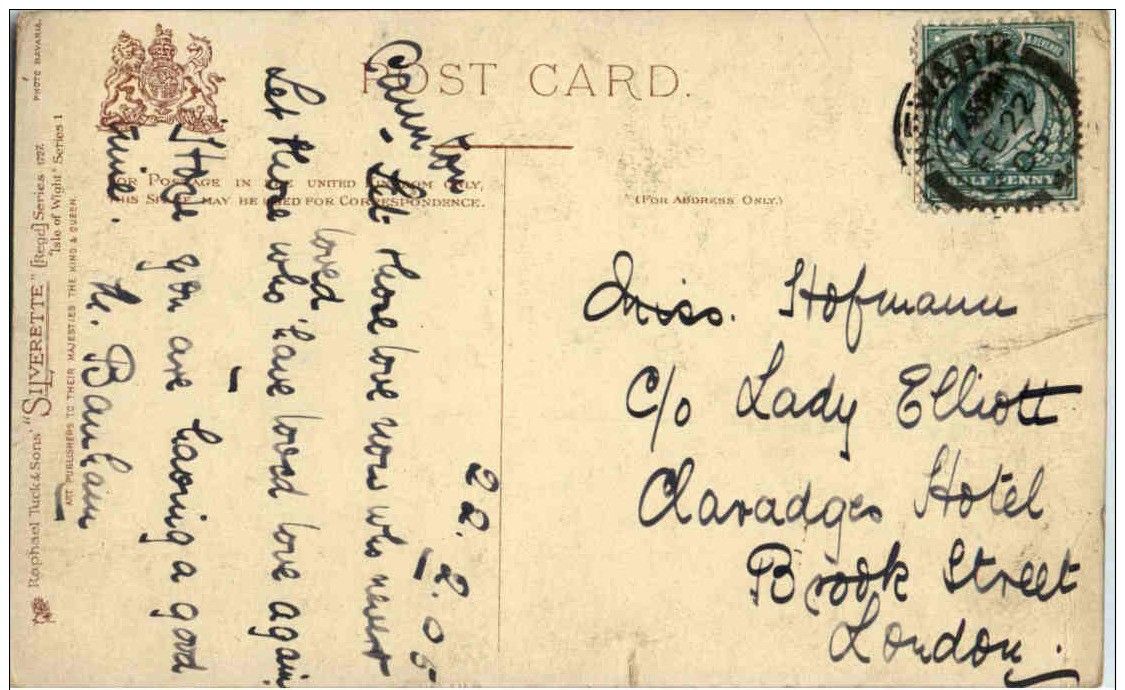 POST CARD.
FOR POSTAGE IN THE UNITED KINGDOM ONLY,
THIS SPACE MAY BE USED FOR CORRESPONDENCE.
(FOR ADDRESS ONLY.)
Raphael Tuck & Sons' "SILVERETTE" [Regd] Series 1727.
"Isle of Wight" Series 1
ART PUBLISHERS TO THEIR MAJESTIES THE KING & QUEEN.
PHOTO BAVARIA.
NEWARK
FE 22
05
HALF PENNY
22.2.05
- Let those love now who never
loved
Let those who have loved love again
I Hope you are having a good
time.
Miss. Hofmann
C/o Lady Elliott
Claradges Hotel
Brook Street
London.